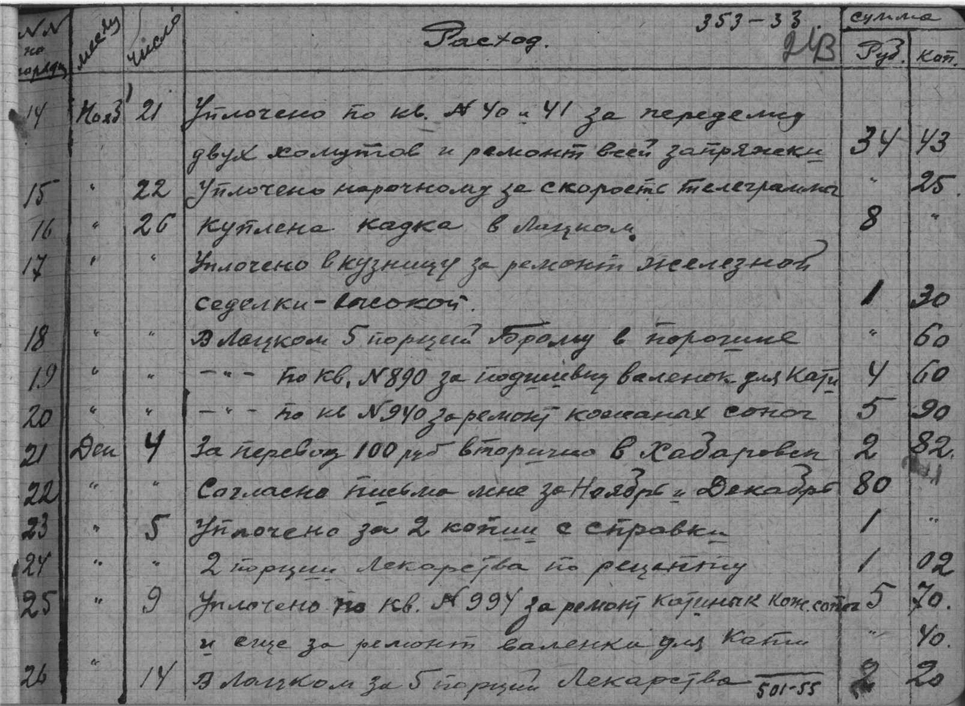 NN по порядк месяц число Расход. 353-33 сумма Руб. Коп.
14 Нояб 21 Уплочено по кв. № 40 и 41 за переделку
двух хомутов и ремонт всей запряжки 34 43
15 " 22 Уплочено нарочному за скорость телеграммы " 25.
16 " 26 Куплена кадка в Лацком. 8 "
17 " " Уплочено в кузницу за ремонт железной
седелки - высокой. 1 30
18 " " В Лацком 5 порций Брому в порошке " 60
19 " " - " - по кв. N 890 за подшивку валенок для Кати 4 60
20 " " - " - по кв N 940 за ремонт кожаных сапог 5 90
21 Дек 4 За перевод 100 руб вторично в Хабаровск 2 82.
22 " " Согласно письма мне за Ноябрь и Декабрь 80
23 " 5 Уплочено за 2 копии с справки 1 "
24 " " 2 порции Лекарства по рецепту 1 02
25 " 9 Уплочено по кв. № 994 за ремонт Катиных кож. сапог 5 70.
и еще за ремонт валенки для Кати " 40.
26 " 14 В Лацком за 5 порций Лекарства 501-55 2 20